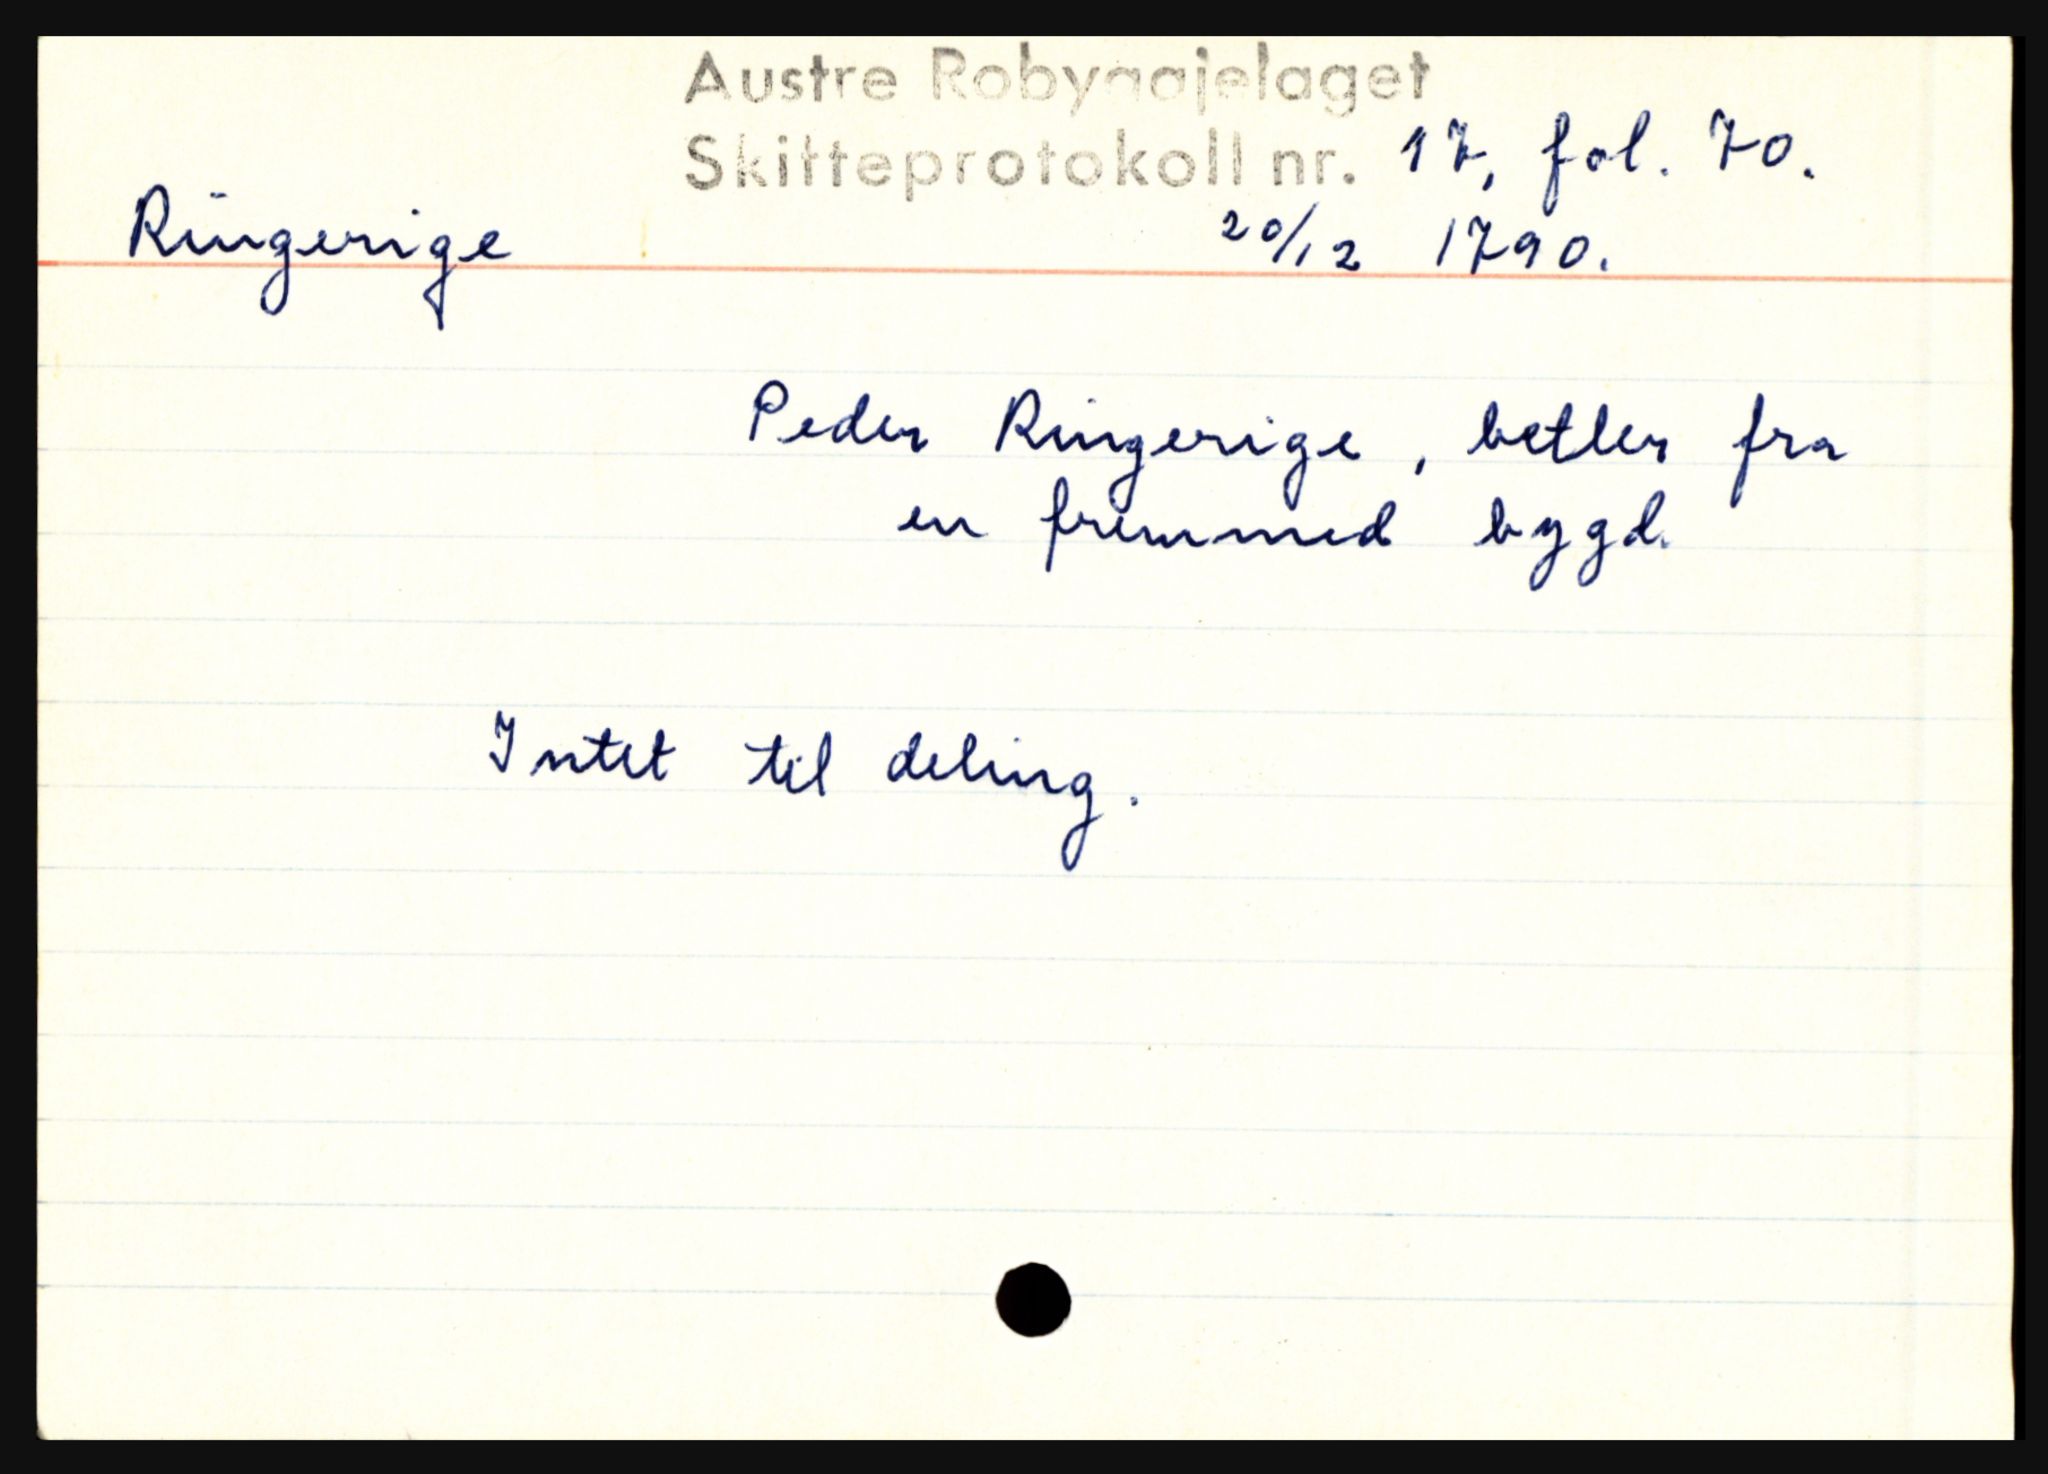 Austre Robyggjelaget
Skifteprotokoll nr. 17, fol. 70.
Ringerige 20/12 1790.
Peder Ringerige, betler fra
en fremmed bygd.
Intet til deling.